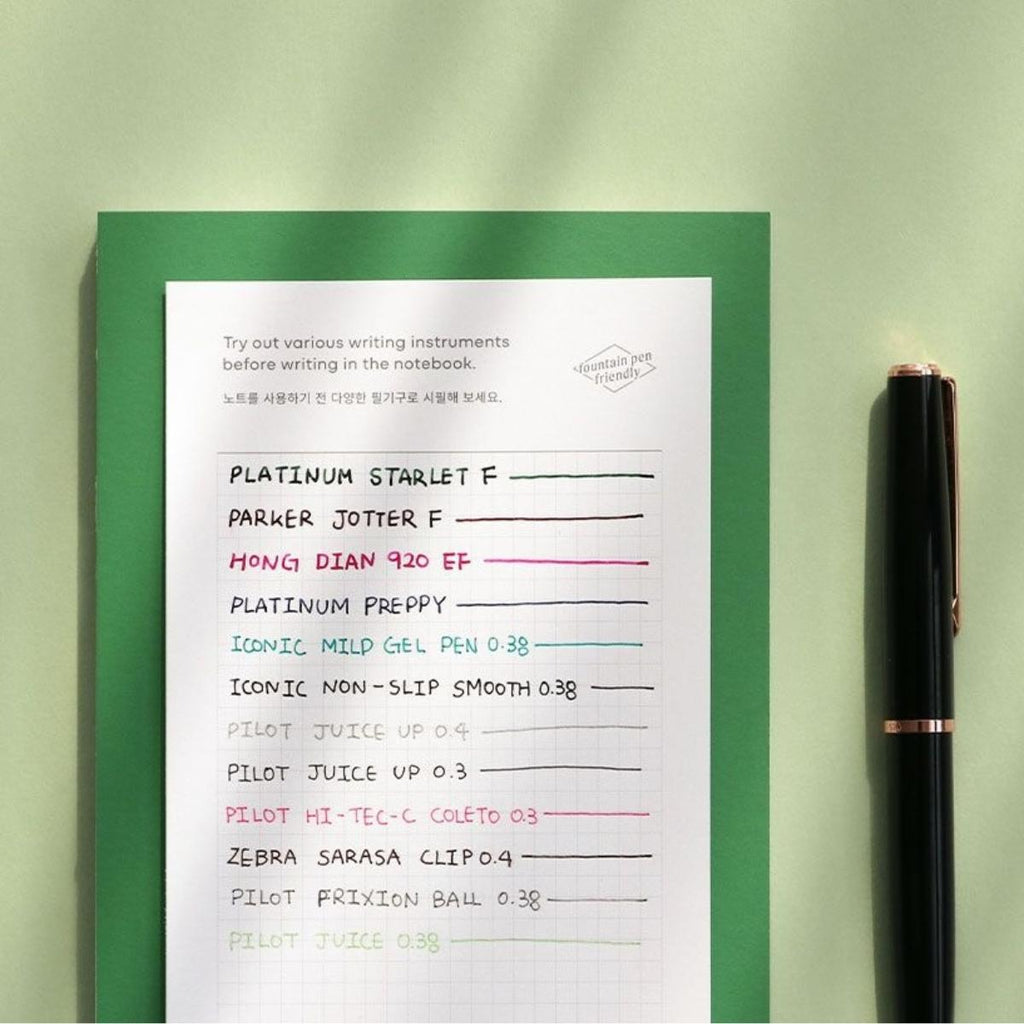 Try out various writing instruments
before writing in the notebook.
노트를 사용하기 전 다양한 필기구로 시필해 보세요.
fountain pen
friendly
PLATINUM STARLET F
PARKER JOTTER F
HONG DIAN 920 EF
PLATINUM PREPPY
ICONIC MILD GEL PEN 0.38
ICONIC NON-SLIP SMOOTH 0.38
PILOT JUICE UP 0.4
PILOT JUICE UP 0.3
PILOT HI-TEC-C COLETO 0.3
ZEBRA SARASA CLIP 0.4
PILOT FRIXION BALL 0.38
PILOT JUICE 0.38